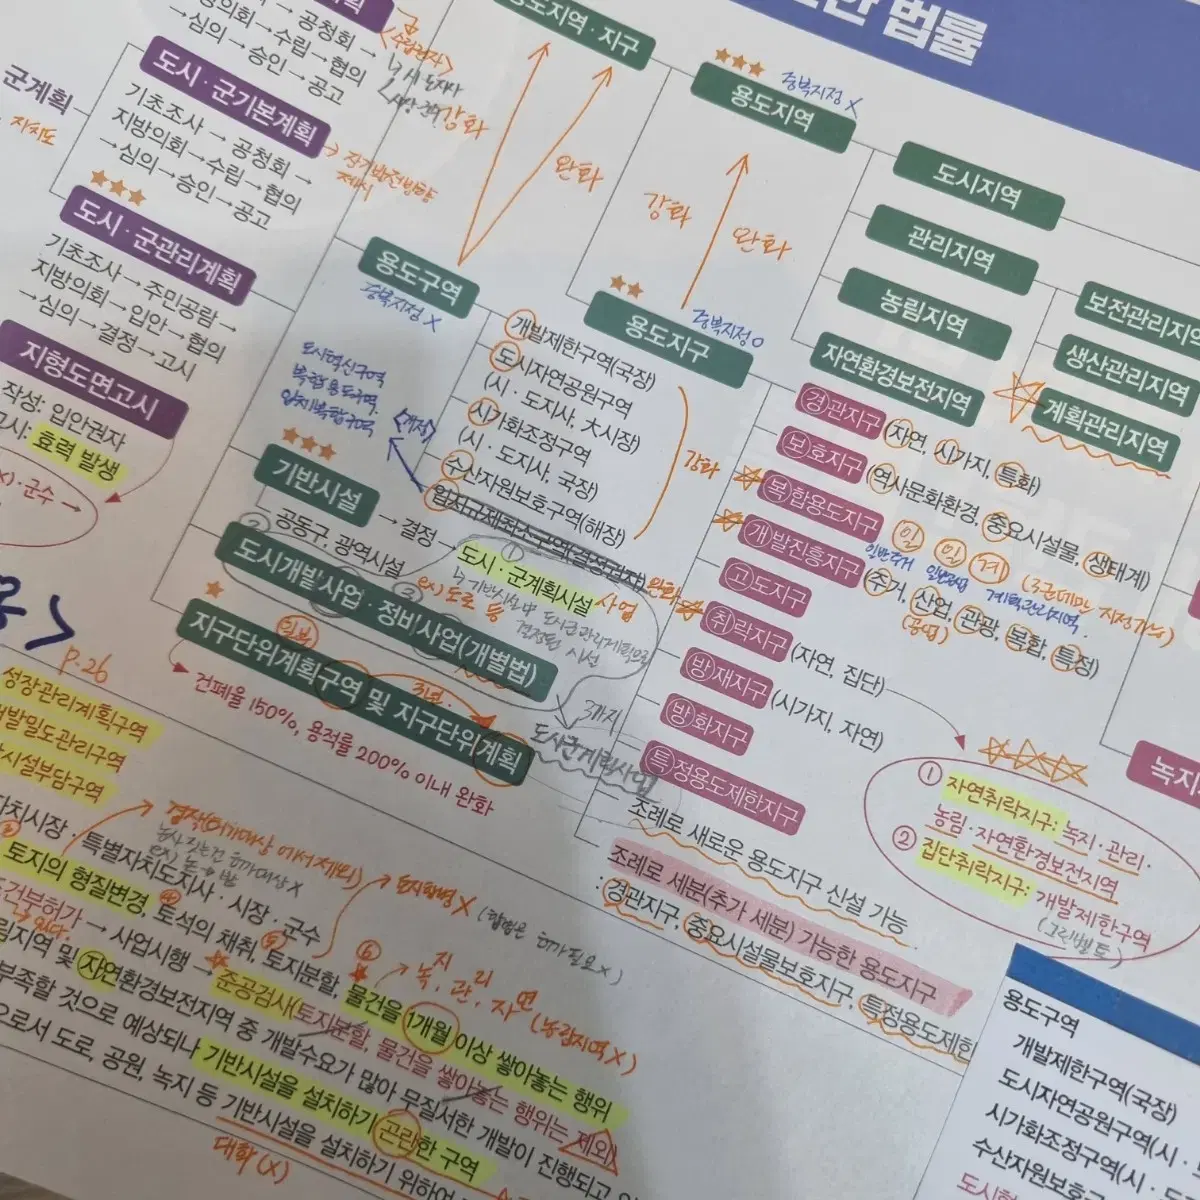 한 법률
계획
공청회 →
의회 → 수립 → 협의
→ 심의 → 승인 → 공고
군계획
자치도
도시 · 군기본계획
기초조사 → 공청회 →
지방의회 → 수립 → 협의
→ 심의 → 승인 → 공고
장기발전방향
제시
★★★
도시 · 군관리계획
기초조사 → 주민공람 →
지방의회 → 입안 → 협의
→ 심의 → 결정 → 고시
지형도면고시
작성: 입안권자
고시: 효력 발생
(x) · 군수 →
용도지역 · 지구
강화
완화
★★★
용도지역
중복지정 X
강화
완화
★★
용도지구
중복지정 O
용도구역
중복지정 X
개발제한구역(국장)
도시자연공원구역
(시 · 도지사, 大시장)
시가화조정구역
(시 · 도지사, 국장)
수산자원보호구역(해장)
입지규제최소구역(결정권자)
강화
완화
도시혁신구역
복합용도구역
입체복합구역
<개정>
★★★
기반시설
→ 결정 → 도시 · 군계획시설 사업
공동구, 광역시설
ex) 도로 등
결정된 시설
도시개발사업 · 정비사업(개별법)
★
일부
지구단위계획구역 및 지구단위계획
3년
건폐율 150%, 용적률 200% 이내 완화
3가지
도시군계획사업
도시지역
관리지역
농림지역
자연환경보전지역
보전관리지역
생산관리지역
계획관리지역
경관지구 (자연, 시가지, 특화)
보호지구 (역사문화환경, 중요시설물, 생태계)
복합용도지구 일 일 계
일반주거 일반공업 계획관리지역
개발진흥지구 (주거, 산업, 관광, 복합, 특정)
(공업)
고도지구
취락지구 (자연, 집단)
방재지구 (시가지, 자연)
방화지구
특정용도제한지구
조례로 새로운 용도지구 신설 가능
조례로 세분(추가 세분) 가능한 용도지구
: 경관지구, 중요시설물보호지구, 특정용도제한
녹지
① 자연취락지구: 녹지 · 관리 ·
농림 · 자연환경보전지역
② 집단취락지구: 개발제한구역
(그린벨트)
P.26
성장관리계획구역
개발밀도관리구역
기반시설부담구역
자치시장 · 특별자치도사 · 시장 · 군수
경작(허가대상에서 제외)
토지합병 X
토지의 형질변경, 토석의 채취, 토지분할, 물건을 1개월 이상 쌓아놓는 행위
지 리
녹, 관, 자연
(농림지역 X)
조건부허가 → 사업시행 → 준공검사(토지분할, 물건을 쌓아놓는 행위는 제외)
있다
림지역 및 자연환경보전지역 중 개발수요가 많아 무질서한 개발이 진행되고
부족할 것으로 예상되나 기반시설을 설치하기 곤란한 구역
으로서 도로, 공원, 녹지 등 기반시설을 설치하기 위하여
대학(X)
용도구역
개발제한구역(국장)
도시자연공원구역(시 ·
시가화조정구역(시 · 도
수산자원보호
도시혁